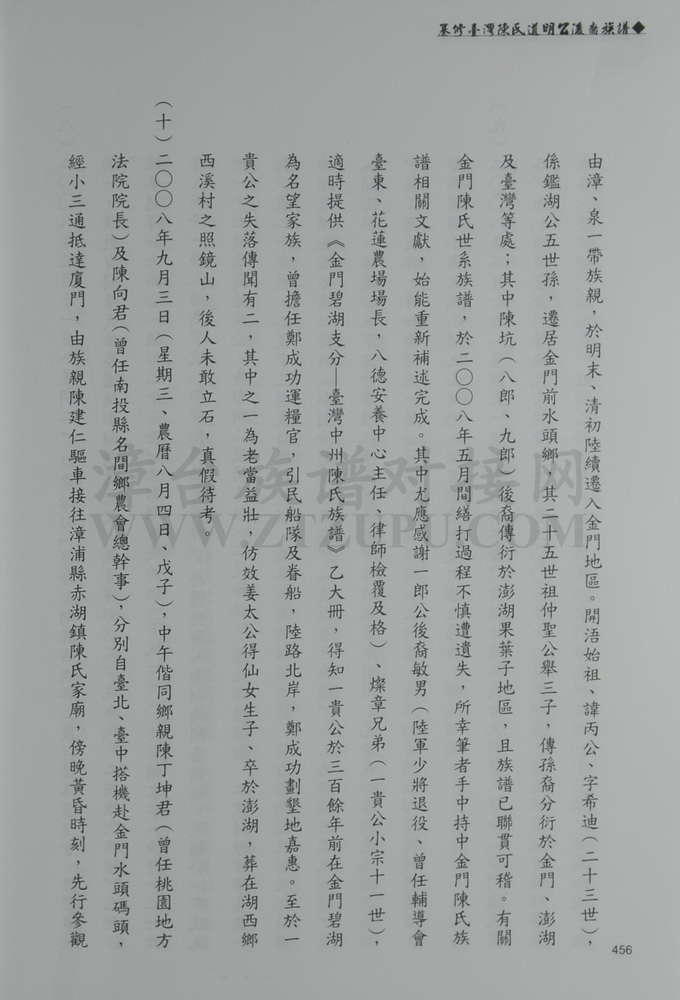 纂修臺灣陳氏道明公派裔族譜◆
由漳、泉一帶族親，於明末、清初陸續遷入金門地區。開浯始祖、諱丙公、字希迪（二十三世），
係鑑湖公五世孫，遷居金門前水頭鄉，其二十五世祖仲聖公舉三子，傳孫裔分衍於金門、澎湖
及臺灣等處；其中陳坑（八郎、九郎）後裔傳衍於澎湖果葉子地區，且族譜已聯貫可稽。有關
金門陳氏世系族譜，於二〇〇八年五月間繕打過程不慎遭遺失，所幸筆者手中持中金門陳氏族
譜相關文獻，始能重新補述完成。其中尤應感謝一郎公後裔敏男（陸軍少將退役、曾任輔導會
臺東、花蓮農場場長，八德安養中心主任、律師檢覆及格）、燦章兄弟（一貴公小宗十一世），
適時提供《金門碧湖支分—臺灣中州陳氏族譜》乙大冊，得知一貴公於三百餘年前在金門碧湖
為名望家族，曾擔任鄭成功運糧官，引民船隊及眷船，陸路北岸，鄭成功劃墾地嘉惠。至於一
貴公之失落傳聞有二，其中之一為老當益壯，仿效姜太公得仙女生子、卒於澎湖，葬在湖西鄉
西溪村之照鏡山，後人未敢立石，真假待考。
（十）二〇〇八年九月三日（星期三、農曆八月四日、戊子），中午偕同鄉親陳丁坤君（曾任桃園地方
法院院長）及陳向君（曾任南投縣名間鄉農會總幹事），分別自臺北、臺中搭機赴金門水頭碼頭，
經小三通抵達廈門，由族親陳建仁驅車接往漳浦縣赤湖鎮陳氏家廟，傍晚黃昏時刻，先行參觀
456
漳台族谱对接网
WWW.ZTZUPU.COM